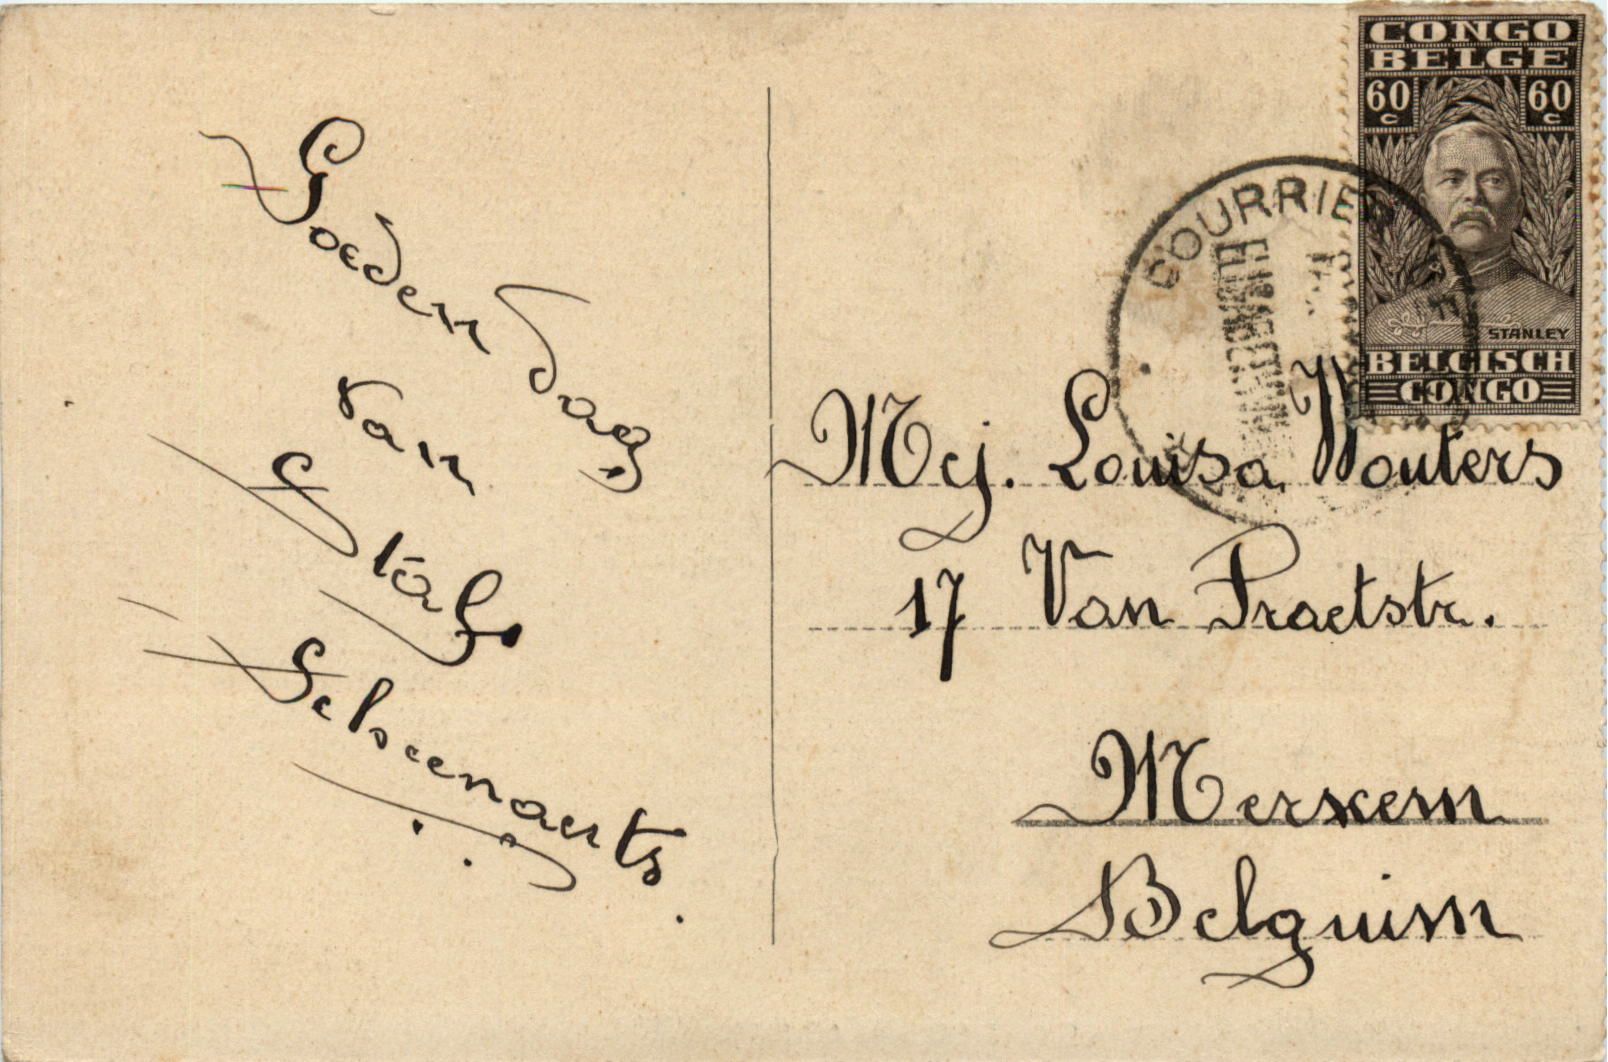 Goeden dag
van
Staf
Selleenaerts.
CONGO
BELGE
60 c 60 c
STANLEY
BELGISCH
CONGO
COURRIER
Mej. Louisa Wouters
17 Van Praetstr.
Merxem
Belguim